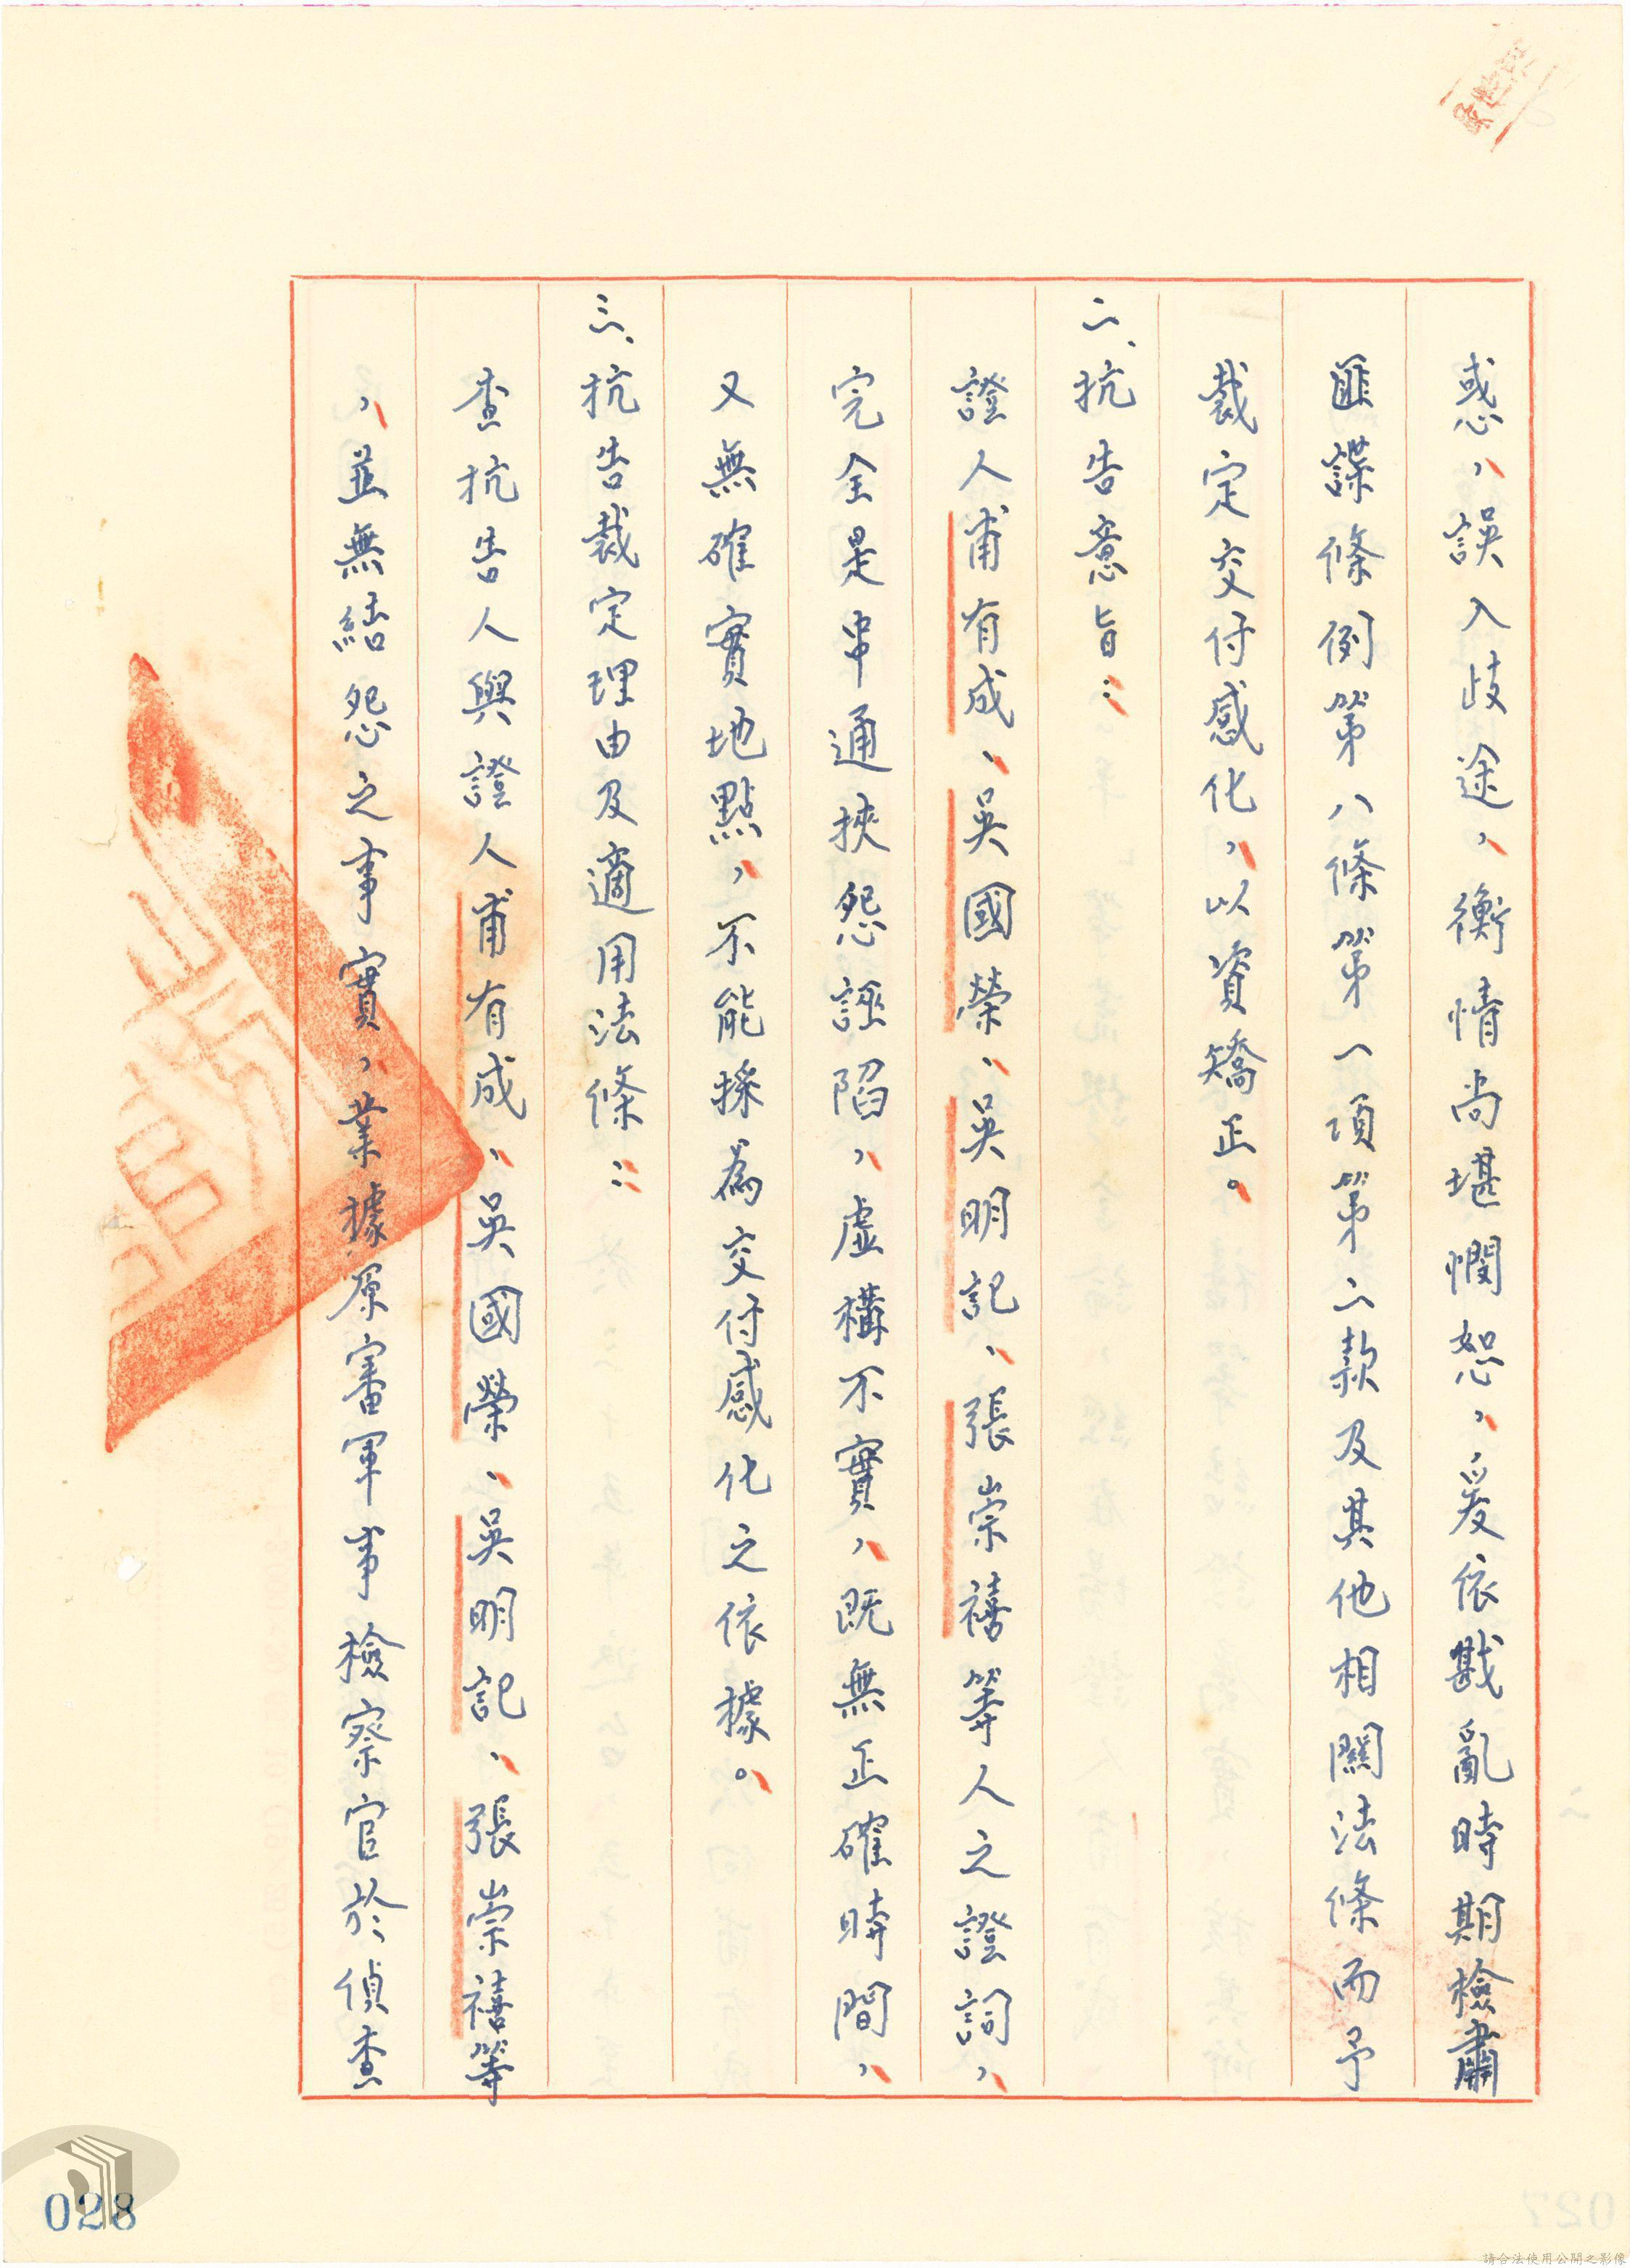 惑，誤入歧途，衡情尚堪憫恕，爰依戡亂時期檢肅
匪諜條例第八條第一項第二款及其他相關法條而予
裁定交付感化，以資矯正。
二、抗告意旨：
證人甫有成、吳國榮、吳明記、張崇禧等人之證詞，
完全是串通挾怨誣陷，虛構不實，既無正確時間，
又無確實地點，不能採為交付感化之依據。
三、抗告裁定理由及適用法條：
查抗告人與證人甫有成、吳國榮、吳明記、張崇禧等
，並無結怨之事實，業據原審軍事檢察官於偵查
028
027
請合法使用公開之影像